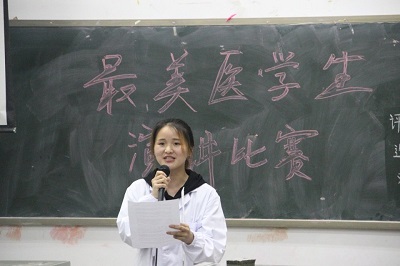 最美医学生
演讲比赛
评